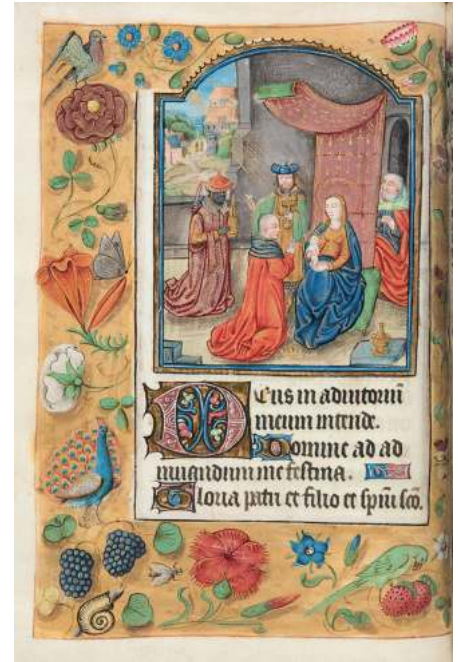 Deus in adiutoriū
meum intende.
Domine ad ad
iuuandum me festina.
Gloria patri et filio et spiūi sc̄o.